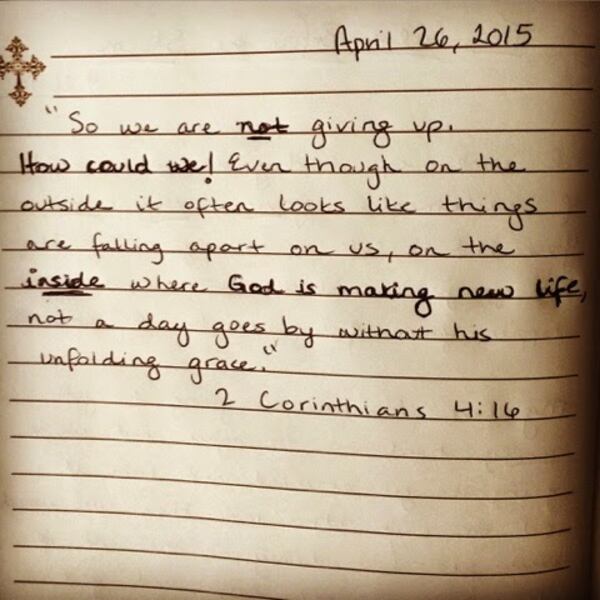 April 26, 2015
"So we are not giving up.
How could we! Even though on the
outside it often looks like things
are falling apart on us, on the
inside where God is making new life,
not a day goes by without his
unfolding grace."
2 Corinthians 4:16